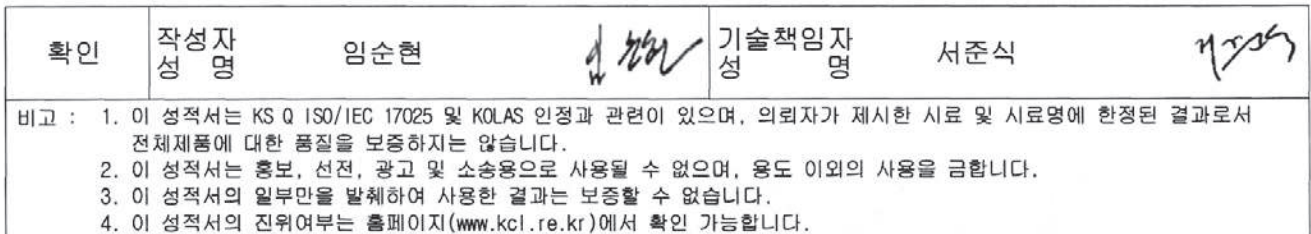 확인 작성자 성 명 임순현 임순현 기술책임자 성 명 서준식
비고 : 1. 이 성적서는 KS Q ISO/IEC 17025 및 KOLAS 인정과 관련이 있으며, 의뢰자가 제시한 시료 및 시료명에 한정된 결과로서
전체제품에 대한 품질을 보증하지는 않습니다.
2. 이 성적서는 홍보, 선전, 광고 및 소송용으로 사용될 수 없으며, 용도 이외의 사용을 금합니다.
3. 이 성적서의 일부만을 발췌하여 사용한 결과는 보증할 수 없습니다.
4. 이 성적서의 진위여부는 홈페이지(www.kcl.re.kr)에서 확인 가능합니다.